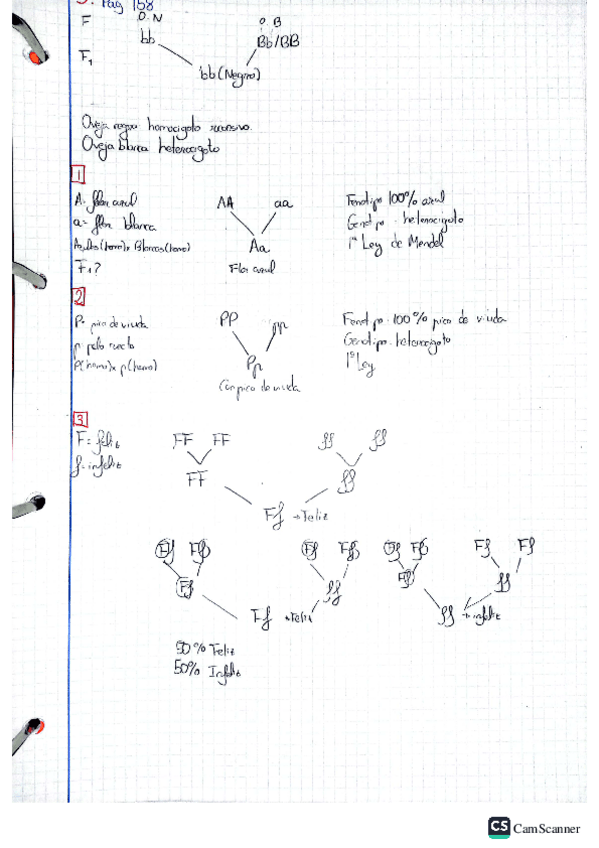 5. Pág 158
F O.N O.B
bb Bb/BB
F₁
bb (Negro)
Oveja negra homocigoto recesivo.
Oveja blanca heterocigoto
1
A: flor azul AA aa Fenotipo 100% azul
a= flor blanca Genotipo: heterocigoto
Azules (homo) x Blancas (homo) Aa 1ª Ley de Mendel
F₁? Flor azul
2
P= pico de viuda PP pp Fenotipo: 100% pico de viuda
p pelo recto Genotipo: heterocigoto
P(homo) x p(homo) Pp 1ª Ley
Con pico de viuda
3
F= feliz FF FF ff ff
f= infeliz
FF ff
Ff → Feliz
Ff Ff Ff Ff Ff Ff Ff Ff
Ff ff Ff ff
Ff → Feliz ff → infeliz
50% Feliz
50% Infeliz
CS CamScanner